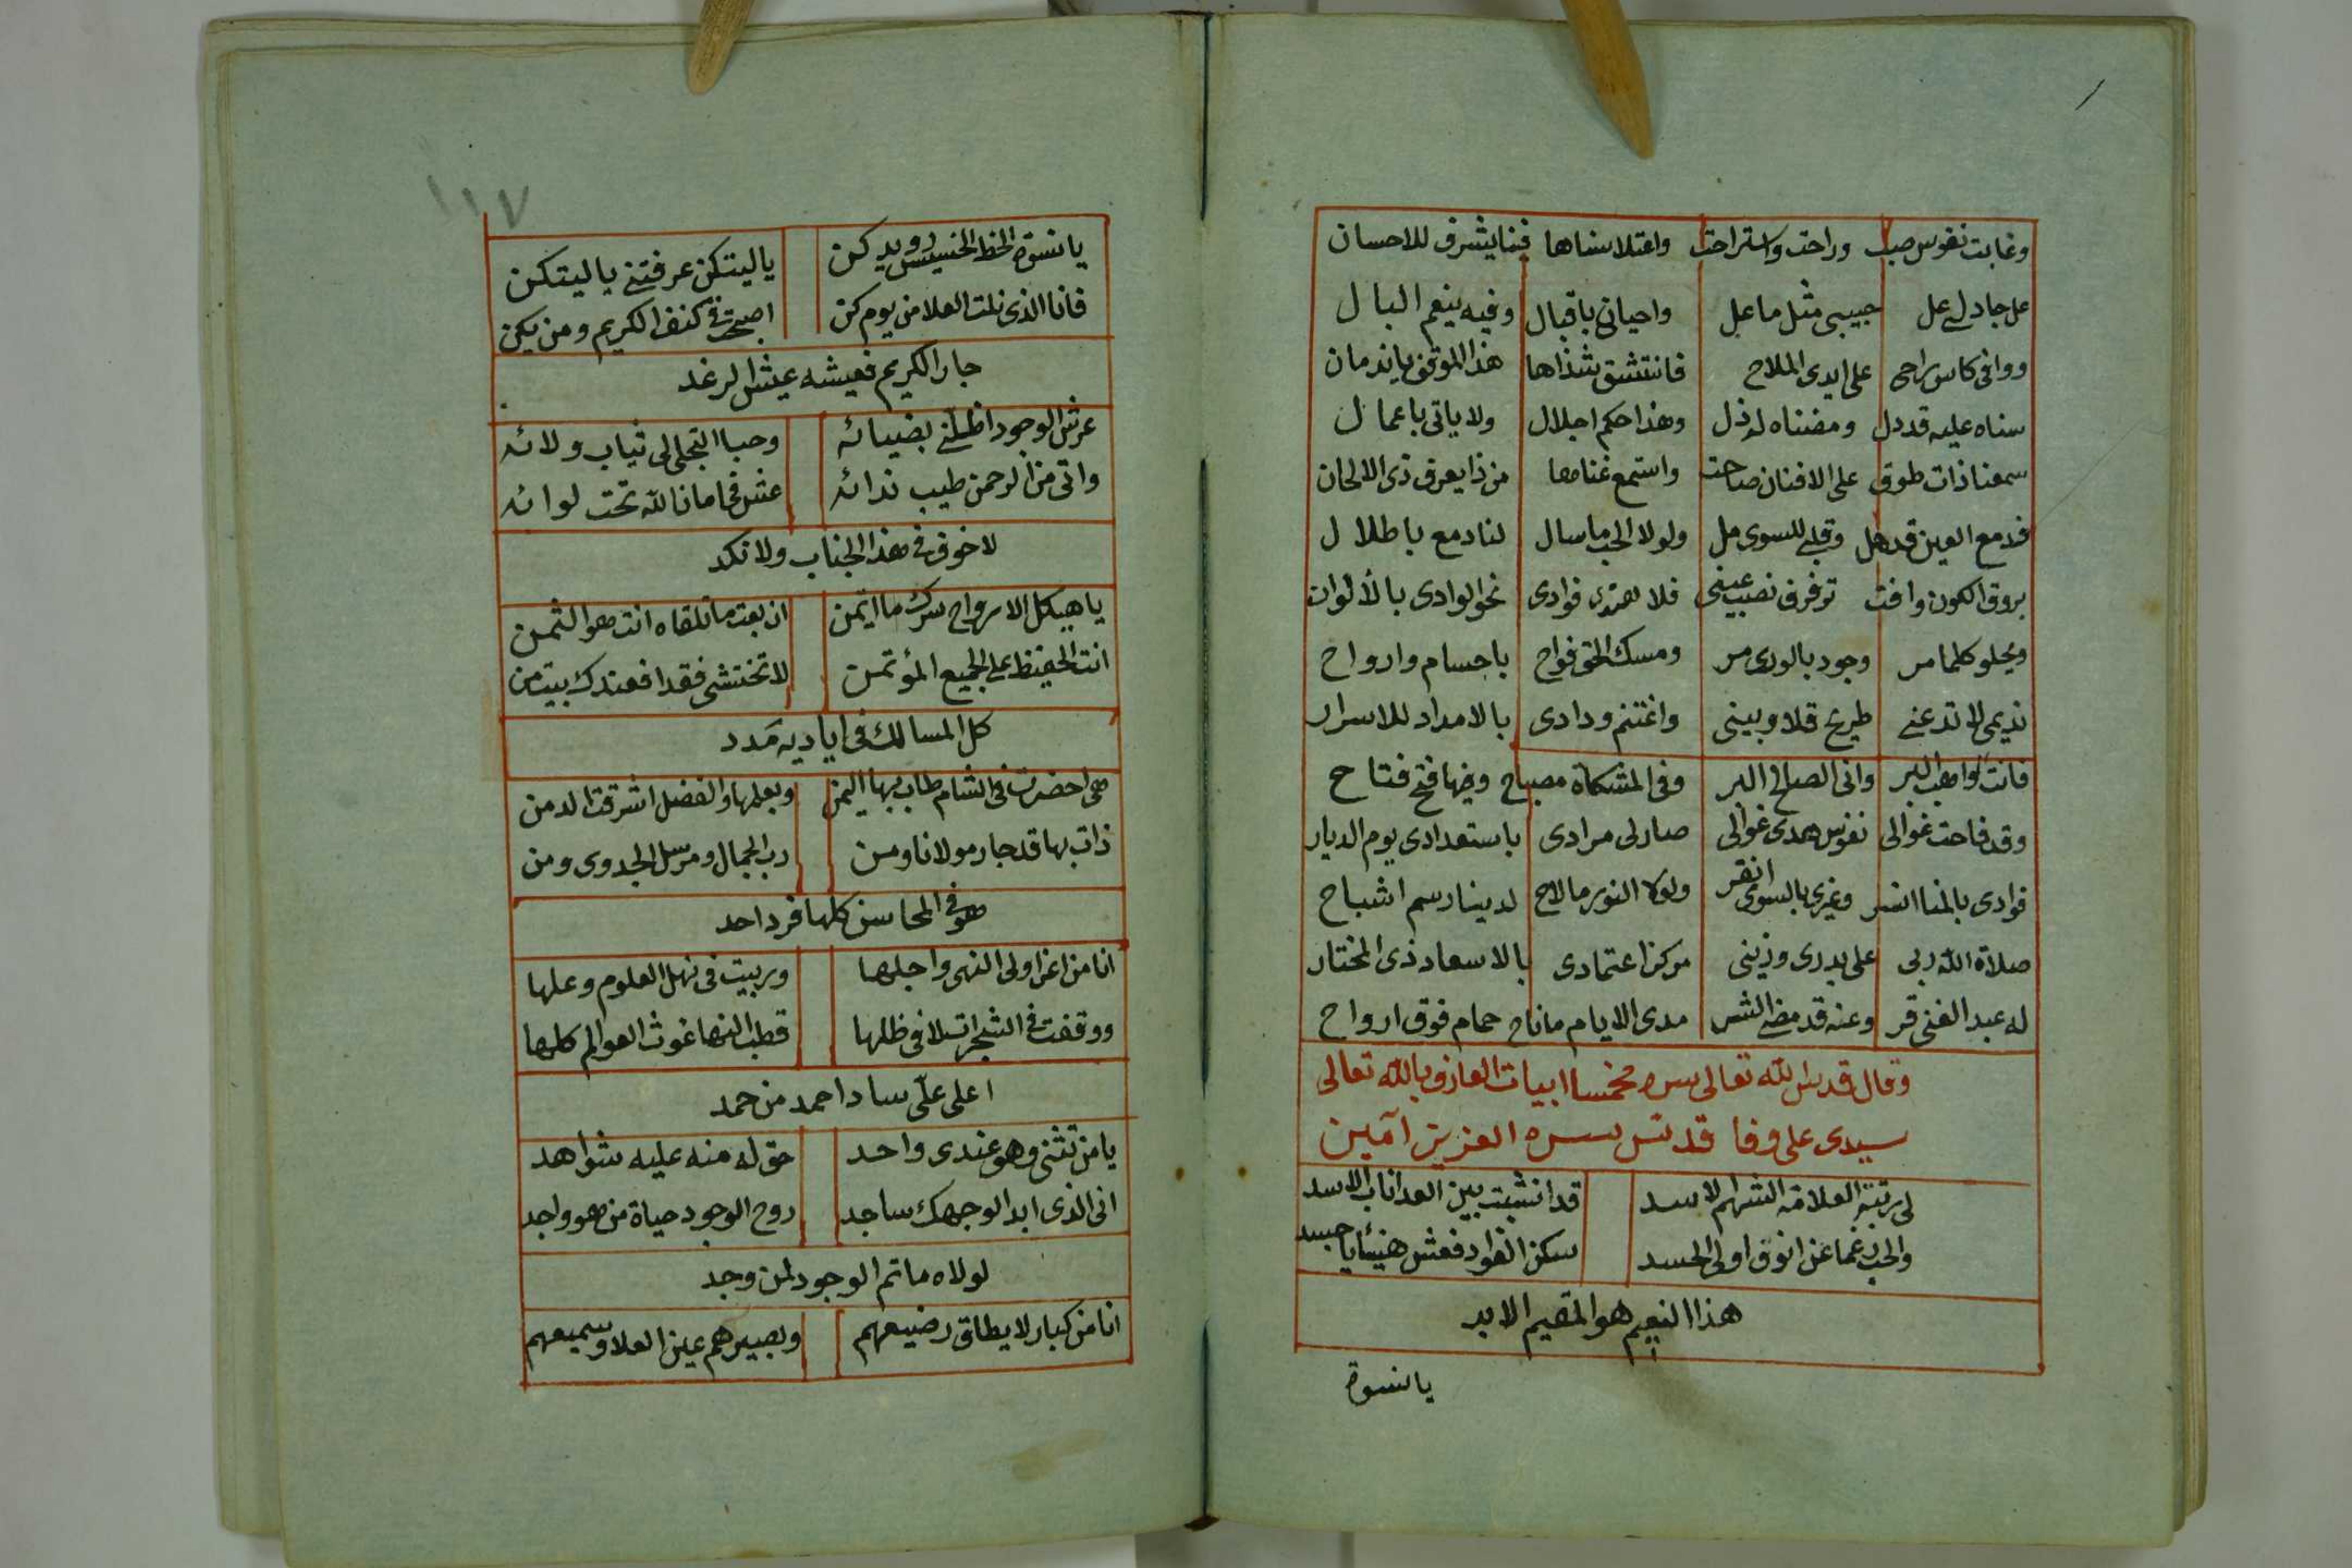 وغابت نفوس صب وراحت واستراحت واعتلا سناها فينا يشرف للاحسان
عل جاد لي عل حبيبي مثل ما عل واحياني باقبال وفيه ينعم البال
ووافى كاس راحى على ايدى الملاح فانتشق شذاها هذا الموقف ياندمان
سناه عليه قد دل ومضناه له ذل وهذا حكم اجلال ولا ياتى باعمال
سمعنا ذات طوق على الافنان صاحت واستمع غناها من ذا يعرف ذى الالحان
فدمع العين قد هل وقلبي للسوى مل ولولا الحب ما سال لنا دمع باطلال
بروق الكون وافت ترفرف نصب عيني فلا فوادى نحو الوادى بالألوان
ويحلو كلما مر وجود بالورى مر ومسك الحق فواح باجسام وارواح
نديمى لا تدعنى طريح قلا وبينى واغتنم ودادى بالامداد للاسرار
فانت لواهب البر وانى الصالح البر وفى المشكاة مصباح وفيها فتح فتاح
وقد فاحت غوالى نفوس هدى غوالى صار لى مرادى باستعدادى يوم الديار
فوادى بالمنا وغيرى بالسوى انقر ولولا النور ما لاح لدينا رسم اشباح
صلاة الله ربى على بدرى وزينى مركز اعتمادى بالاسعاد ذى المختار
له عبد الغنى قر وعنه قد مضى الشر مدى الايام ما ناح حمام فوق ارواح
وقال قدس الله تعالى سره مخمسا ابيات العارف بالله تعالى
سيدى على وفا قدس سره العزيز آمين
لى رتبة العلامة الشهم الاسد قد انشبت بين العدا ناب الاسد
والحب رغما عن انوف اولى الحسد سكن الفواد فعش هنيئا يا جسد
هذا النعيم هو المقيم الى الابد
يا نسوة
١١٧
يا نسوة الحظ الخسيس رويدكن ياليتكن عرفتنى ياليتكن
فانا الذى نلت العلا من يوم كن اصبحت فى كنف الكريم ومن يكن
جار الكريم فعيشه عيش الرغد
عرش الوجود اظلنى بضيائه وحبا التجلى لى ثياب ولائه
واتى من الرحمن طيب ندائه عش فى امان الله تحت لوائه
لا خوف فى هذا الجناب ولا نكد
يا هيكل الارواح سرك ما اتمن ان بعت ما تلقاه انت هو الثمن
انت الحفيظ على الجميع المؤتمن لا تختشى فقدا فعندك بيت من
كل المسالك فى اياديه مدد
هى احضرت فى الشام طاب بها اليمن وبعلمها والفضل اشرقت الدمن
ذات بها قد جار مولانا ومن رب الجمال ومرسل الجدوى ومن
هو فى المحاسن كلها فرد احد
انا من اعز اولى النهى واجلها وربيت فى نهل العلوم وعلها
ووقفت فى الشجرات لا فى ظلها قطب النها غوث العوالم كلها
اعلى علىّ ساد احمد من حمد
يا من تثنى وهو عندى واحد حق له منه عليه شواهد
انى الذى ابدا لوجهك ساجد روح الوجود حياة من هو واجد
لولاه ما تم الوجود لمن وجد
انا من كبار لا يطاق رضيعهم وبصيرهم عين العلا وسميعهم